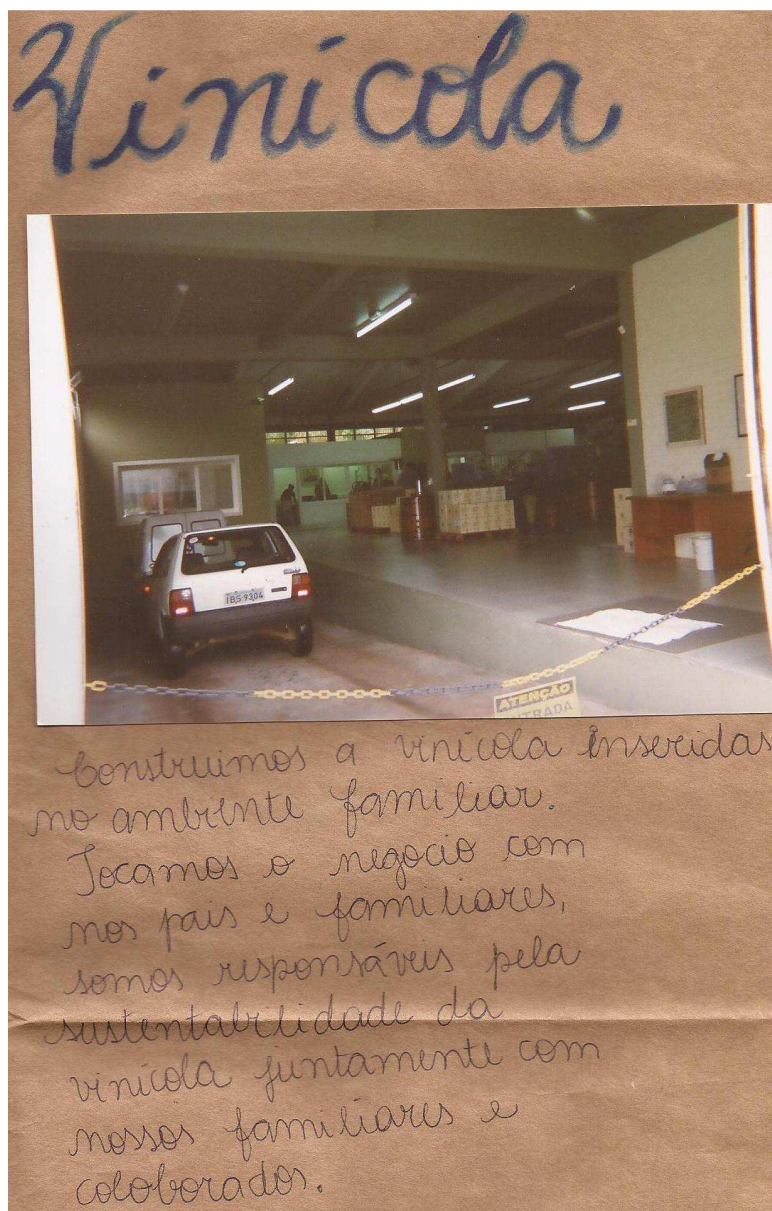 Vinícola
IBS 9304
ATENÇÃO
ENTRADA
Construimos a vinícola inseridas
no ambiente familiar.
Tocamos o negocio com
nos pais e familiares,
somos responsáveis pela
sustentabilidade da
vinícola juntamente com
nossos familiares e
coloborados.